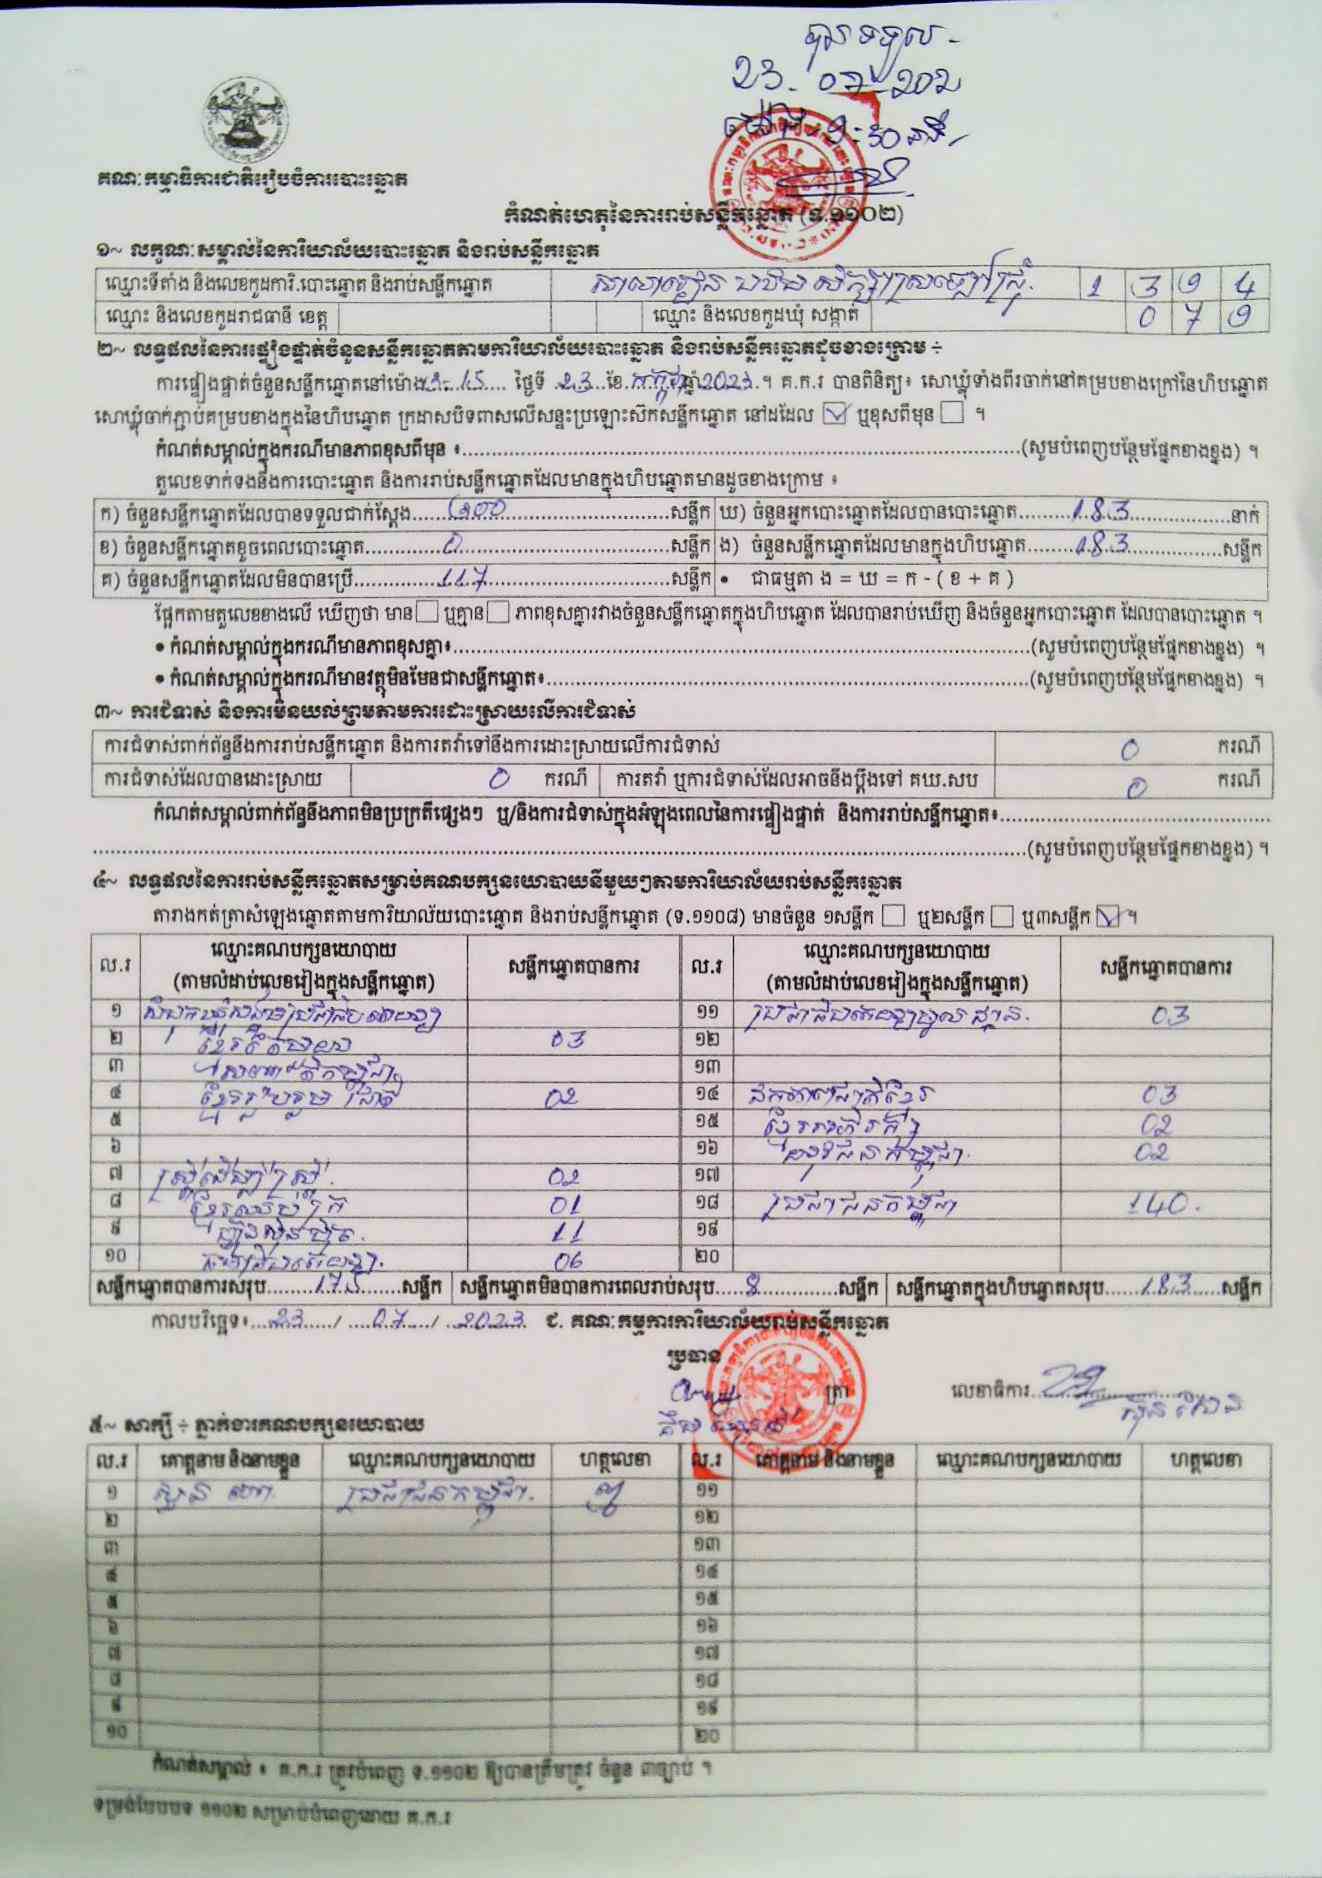 បានទទួល-
23. 07-202
គណៈកម្មាធិការជាតិរៀបចំការបោះឆ្នោត
កំណត់ហេតុនៃការរាប់សន្លឹកឆ្នោត (ទ.១១០២)
១~ លក្ខណៈសម្គាល់នៃការិយាល័យបោះឆ្នោត និងរាប់សន្លឹកឆ្នោត
ឈ្មោះទីតាំង និងលេខកូដការិ.បោះឆ្នោត និងរាប់សន្លឹកឆ្នោត 1 3 9 4
ឈ្មោះ និងលេខកូដរាជធានី ខេត្ត ឈ្មោះ និងលេខកូដឃុំ សង្កាត់ 0 7 9
២~ លទ្ធផលនៃការផ្ទៀងផ្ទាត់ចំនួនសន្លឹកឆ្នោតតាមការិយាល័យបោះឆ្នោត និងរាប់សន្លឹកឆ្នោតដូចខាងក្រោម ÷
ការផ្ទៀងផ្ទាត់ចំនួនសន្លឹកឆ្នោតនៅម៉ោង 3-15 ថ្ងៃទី 23 ខែ កក្កដា ឆ្នាំ 2023 ។ គ.ក.រ បានពិនិត្យ៖ សោឃ្លុំទាំងពីរចាក់នៅគម្របខាងក្រៅនៃហិបឆ្នោត
សោឃ្លុំចាក់ភ្ជាប់គម្របខាងក្នុងនៃហិបឆ្នោត ក្រដាសបិទពាសលើសន្ទះប្រឡោះសឹកសន្លឹកឆ្នោត នៅដដែល ☑ ឬខុសពីមុន ☐ ។
កំណត់សម្គាល់ក្នុងករណីមានភាពខុសពីមុន ៖..........(សូមបំពេញបន្ថែមផ្នែកខាងខ្នង) ។
តួលេខទាក់ទងនឹងការបោះឆ្នោត និងការរាប់សន្លឹកឆ្នោតដែលមានក្នុងហិបឆ្នោតមានដូចខាងក្រោម ៖
ក) ចំនួនសន្លឹកឆ្នោតដែលបានទទួលជាក់ស្តែង..........សន្លឹក ឃ) ចំនួនអ្នកបោះឆ្នោតដែលបានបោះឆ្នោត.....183.....នាក់
ខ) ចំនួនសន្លឹកឆ្នោតខូចពេលបោះឆ្នោត.....0.....សន្លឹក ង) ចំនួនសន្លឹកឆ្នោតដែលមានក្នុងហិបឆ្នោត.....183.....សន្លឹក
គ) ចំនួនសន្លឹកឆ្នោតដែលមិនបានប្រើ.....117.....សន្លឹក • ជាធម្មតា ង = ឃ = ក - ( ខ + គ )
ផ្អែកតាមតួលេខខាងលើ ឃើញថា មាន ☐ ឬគ្មាន ☐ ភាពខុសគ្នារវាងចំនួនសន្លឹកឆ្នោតក្នុងហិបឆ្នោត ដែលបានរាប់ឃើញ និងចំនួនអ្នកបោះឆ្នោត ដែលបានបោះឆ្នោត ។
• កំណត់សម្គាល់ក្នុងករណីមានភាពខុសគ្នា៖..........(សូមបំពេញបន្ថែមផ្នែកខាងខ្នង) ។
• កំណត់សម្គាល់ក្នុងករណីមានវត្ថុមិនមែនជាសន្លឹកឆ្នោត៖..........(សូមបំពេញបន្ថែមផ្នែកខាងខ្នង) ។
៣~ ការជំទាស់ និងការមិនយល់ព្រមតាមការដោះស្រាយលើការជំទាស់
ការជំទាស់ពាក់ព័ន្ធនឹងការរាប់សន្លឹកឆ្នោត និងការតវ៉ាទៅនឹងការដោះស្រាយលើការជំទាស់ 0 ករណី
ការជំទាស់ដែលបានដោះស្រាយ 0 ករណី ការតវ៉ា ឬការជំទាស់ដែលអាចនឹងប្តឹងទៅ គឃ.សប 0 ករណី
កំណត់សម្គាល់ពាក់ព័ន្ធនឹងភាពមិនប្រក្រតីផ្សេងៗ ឬ/និងការជំទាស់ក្នុងអំឡុងពេលនៃការផ្ទៀងផ្ទាត់ និងការរាប់សន្លឹកឆ្នោត៖..........
..........(សូមបំពេញបន្ថែមផ្នែកខាងខ្នង) ។
៤~ លទ្ធផលនៃការរាប់សន្លឹកឆ្នោតសម្រាប់គណបក្សនយោបាយនីមួយៗតាមការិយាល័យរាប់សន្លឹកឆ្នោត
តារាងកត់ត្រាសំឡេងឆ្នោតតាមការិយាល័យបោះឆ្នោត និងរាប់សន្លឹកឆ្នោត (ទ.១១០៨) មានចំនួន ១សន្លឹក ☐ ឬ២សន្លឹក ☐ ឬ៣សន្លឹក ☑ ។
ល.រ ឈ្មោះគណបក្សនយោបាយ (តាមលំដាប់លេខរៀងក្នុងសន្លឹកឆ្នោត) សន្លឹកឆ្នោតបានការ ល.រ ឈ្មោះគណបក្សនយោបាយ (តាមលំដាប់លេខរៀងក្នុងសន្លឹកឆ្នោត) សន្លឹកឆ្នោតបានការ
១ ១១ 03
២ 03 ១២
៣ ១៣
៤ ខ្មែររួបរួមជាតិ 02 ១៤ ឯកភាពជាតិខ្មែរ 03
៥ ១៥ 02
៦ ១៦ 02
៧ 02 ១៧
៨ 01 ១៨ ប្រជាជនកម្ពុជា 140.
៩ 11 ១៩
១០ 06 ២០
សន្លឹកឆ្នោតបានការសរុប.....175.....សន្លឹក សន្លឹកឆ្នោតមិនបានការពេលរាប់សរុប.....8.....សន្លឹក សន្លឹកឆ្នោតក្នុងហិបឆ្នោតសរុប.....183.....សន្លឹក
កាលបរិច្ឆេទ៖ 23 / 07 / 2023 ជ. គណៈកម្មការការិយាល័យរាប់សន្លឹកឆ្នោត
ប្រធាន
ត្រា លេខាធិការ
៥~ សាក្សី ÷ ភ្នាក់ងារគណបក្សនយោបាយ
ល.រ គោត្តនាម និងនាមខ្លួន ឈ្មោះគណបក្សនយោបាយ ហត្ថលេខា ល.រ គោត្តនាម និងនាមខ្លួន ឈ្មោះគណបក្សនយោបាយ ហត្ថលេខា
១ ប្រជាជនកម្ពុជា. ១១
២ ១២
៣ ១៣
៤ ១៤
៥ ១៥
៦ ១៦
៧ ១៧
៨ ១៨
៩ ១៩
១០ ២០
កំណត់សម្គាល់ ៖ គ.ក.រ ត្រូវបំពេញ ទ.១១០២ ឱ្យបានត្រឹមត្រូវ ចំនួន ៣ច្បាប់ ។
ទម្រង់បែបបទ ១១០២ សម្រាប់បំពេញដោយ គ.ក.រ